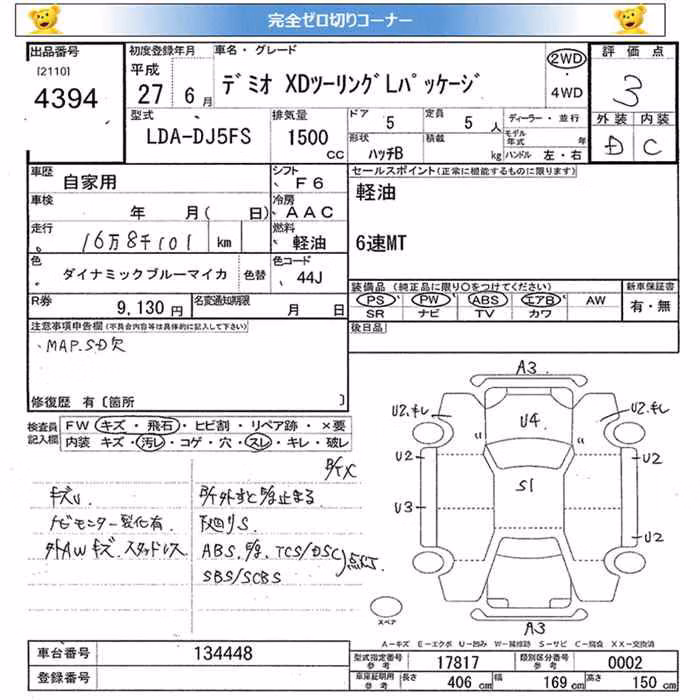 完全ゼロ切りコーナー
出品番号 初度登録年月 車名・グレード 2WD 評価点
[2110] 平成
4394 27 6月 デミオ XDツーリングLパッケージ 4WD 3
型式 排気量 ドア 5 定員 5人 ディーラー・並行 外装 内装
LDA-DJ5FS 1500CC 形状 ハッチB 積載 kg モデル年式 年 D C
ハンドル 左・右
車歴 自家用 シフト F6 セールスポイント(正常に機能するものに限ります)
車検 年 月( 日) 冷房 AAC 軽油
走行 16万8千101 km 燃料 軽油 6速MT
色 ダイナミックブルーマイカ 色替 色コード 44J
装備品(純正品に限り○をつけてください) 新車保証書
R券 9,130円 名変通知期限 月 日 PS PW ABS エアB AW 有・無
SR ナビ TV カワ
注意事項申告欄(不具合内容等は具体的に記入して下さい) 後日品
・MAP.SD欠
修復歴 有〔箇所 〕
検査員記入欄 FW キズ・飛石・ヒビ割・リペア跡・×要
内装 キズ・汚レ・コゲ・穴・スレ・キレ・破レ
キズU
ナビモニター劣化有.
外AWキズ.スタッドレス
止まる
下回りS.
ABS. TCS/DSC 点灯
SBS/SCBS
A3
U2.キレ U4 U2.キレ
U2 U2
S1
U3
U2
A3
スペア
A-キズ E-エクボ U-凹み W-補修跡 S-サビ C-腐食 XX-交換済
車台番号 134448 型式指定番号 参考 17817 類別区分番号 参考 0002
登録番号 車庫証明用 参考 長さ 406cm 幅 169cm 高さ 150cm